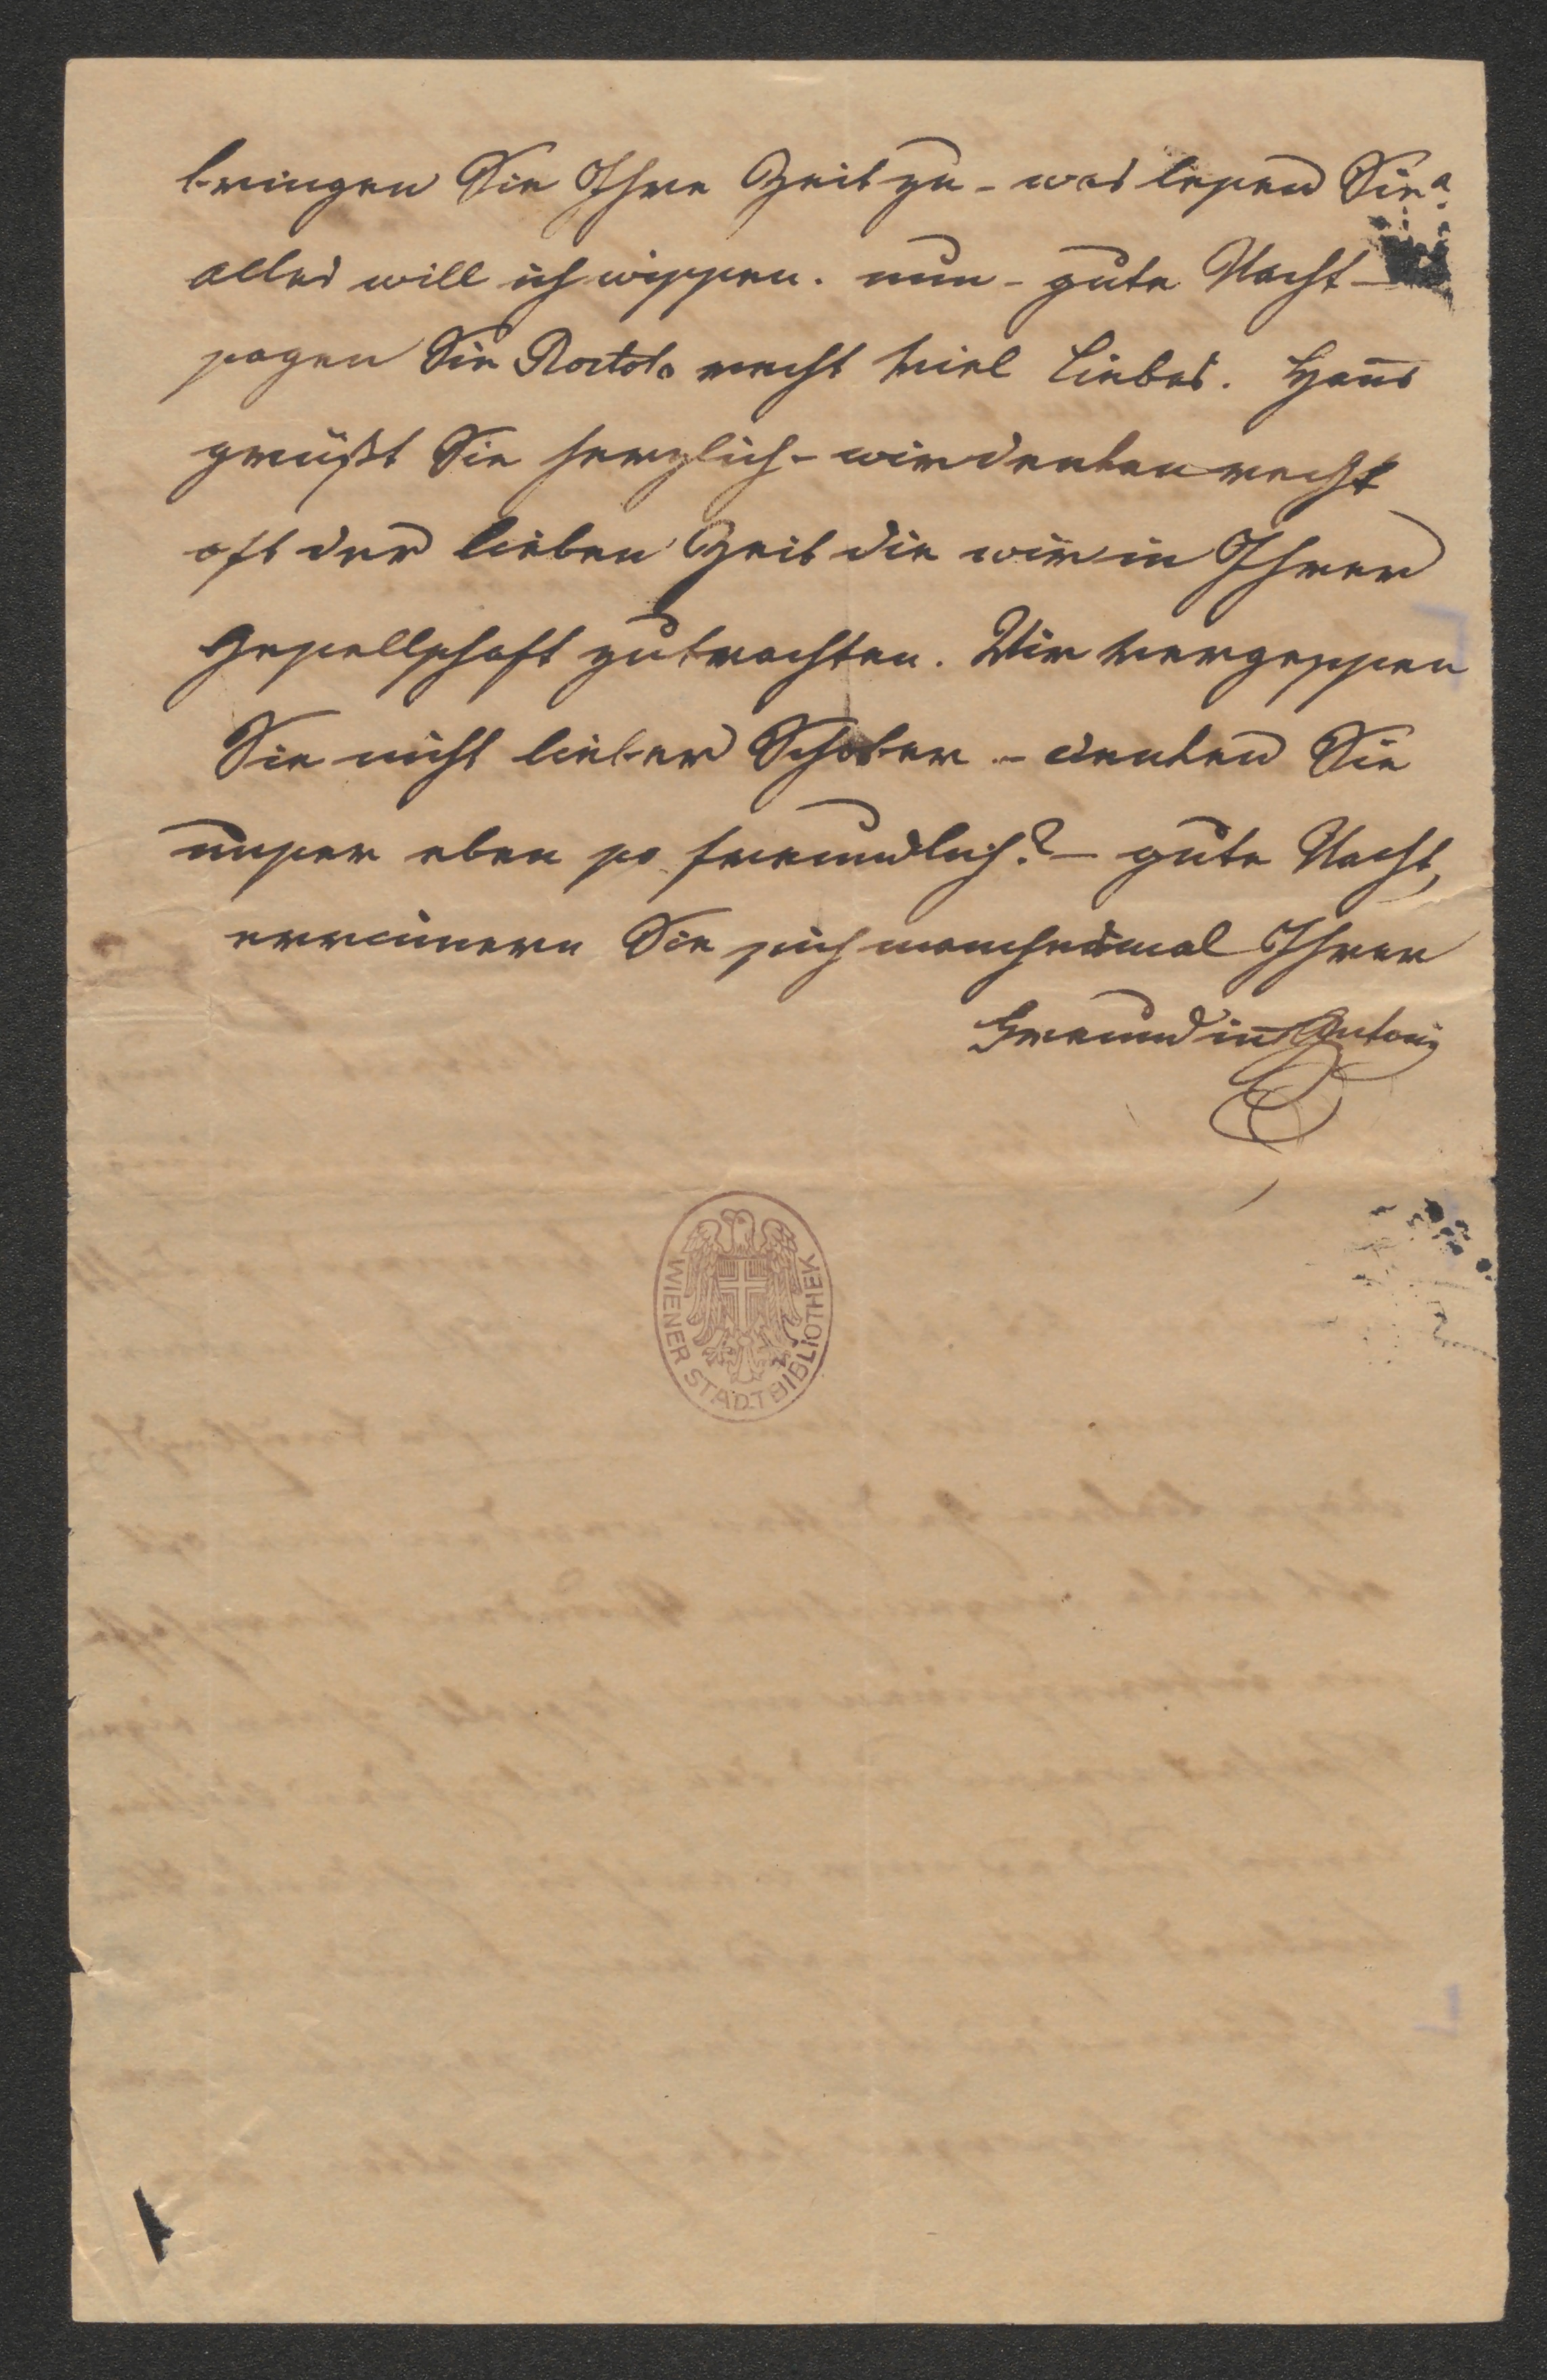 bringen Sie Ihre Zeit zu - was lesen Sie?
alles will ich wissen. nun - gute Nacht -
sagen Sie recht viel Liebes. Hans
grüßt Sie herzlich - wir denken recht
oft der lieben Zeit die wir in Ihrer
Gesellschaft zubrachten. Wir vergessen
Sie nicht lieber Schober - denken Sie
unser eben so freundlich? - gute Nacht,
errinnern Sie sich manchesmal Ihrer
Freundin Antonie
WIENER STADTBIBLIOTHEK